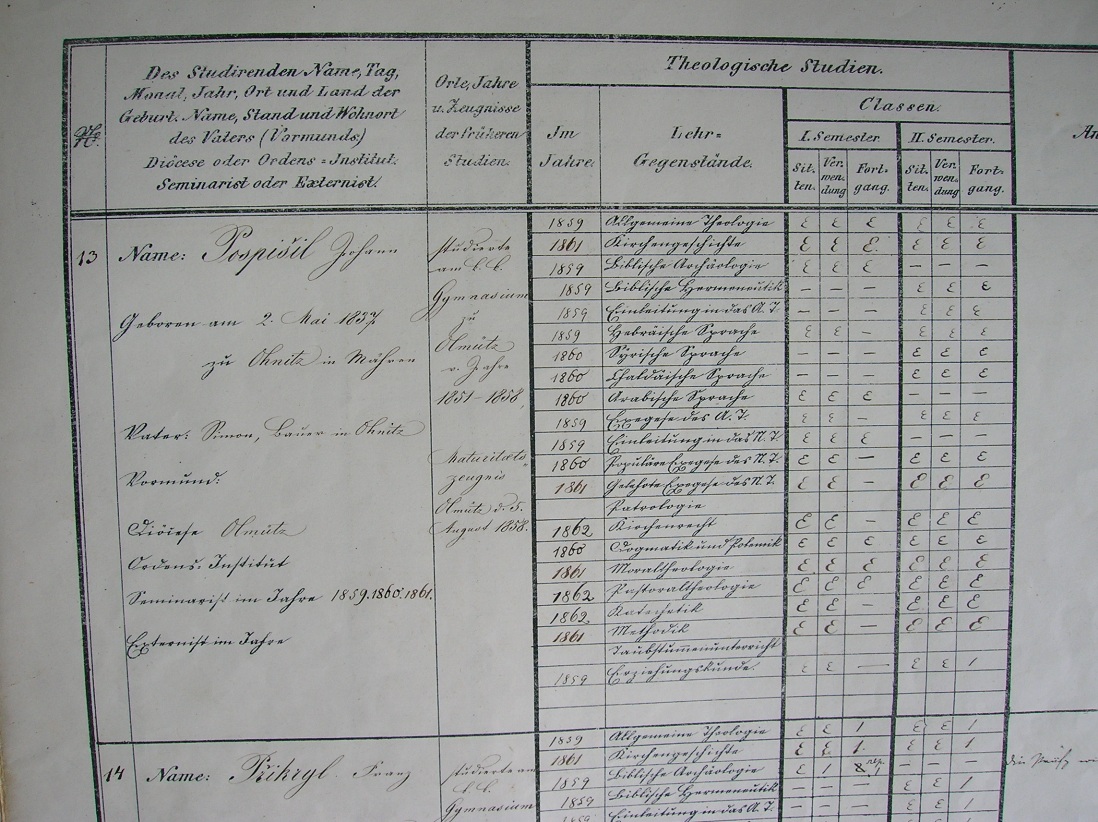 №.
Des Studirenden Name, Tag,
Monat, Jahr, Ort und Land der
Geburt. Name, Stand und Wohnort
des Vaters (Vormunds)
Diöcese oder Ordens=Institut.
Seminarist oder Externist.
Orte, Jahre
u. Zeugnisse
der früheren
Studien.
Theologische Studien.
Im
Jahre:
Lehr=
Gegenstände.
Classen.
I. Semester.
II. Semester.
Sit. ten.
Ver. wen. dung
Fort. gang.
Sit. ten.
Ver. wen. dung
Fort. gang.
An
13
Name: Pospišil Johann
Geboren am 2. Mai 1837
zu Ohnitz in Mähren
Vater: Simon, Bauer in Ohnitz
Vormund:
Diöcese Olmütz
Ordens: Institut
Seminarist im Jahre 1859. 1860. 1861.
Externist im Jahre
studierte
am k. k.
Gymnasium
zu
Olmütz
v. Jahre
1851-1858,
Maturitäts-
zeugnis
Olmütz d. 5.
August 1858.
1859 Allgemeine Theologie E E E E E E
1861 Kirchengeschichte E E E. E E E
1859 Biblische Archäologie E E E — — —
1859 Biblische Hermeneutik — — — E E E
1859 Einleitung in das A. T. — — — E E E
1859 Hebräische Sprache E E — E E E
1860 Syrische Sprache — — — E E E
1860 Chaldäische Sprache — — — E E E
1860 Arabische Sprache E E E — — —
1859 Exegese des A. T. E E — E E E
1859 Einleitung in das N. T. E E E — — —
1860 Populäre Exegese des N. T. E E — E E E
1861 Gelehrte Exegese des N. T. E E — E E E
Patrologie
1862 Kirchenrecht E E — E E E
1860 Dogmatik und Polemik E E E E E E
1861 Moraltheologie E E E E E E
1862 Pastoraltheologie E E E E E E
1862 Katechetik E E — E E E
1861 Methodik E E — E E E
Taubstummenunterricht
1859 Erziehungskunde. E E — E E 1
14
Name: Přikryl Franz
studierte am
k. k.
Gymnasium
1859 Allgemeine Theologie E E 1 E E 1
1861 Kirchengeschichte E E 1. E E 1
1859 Biblische Archäologie E 1 — — —
1859 Biblische Hermeneutik — — — E E 1
1859 Einleitung in das A. T. — — — E E 1